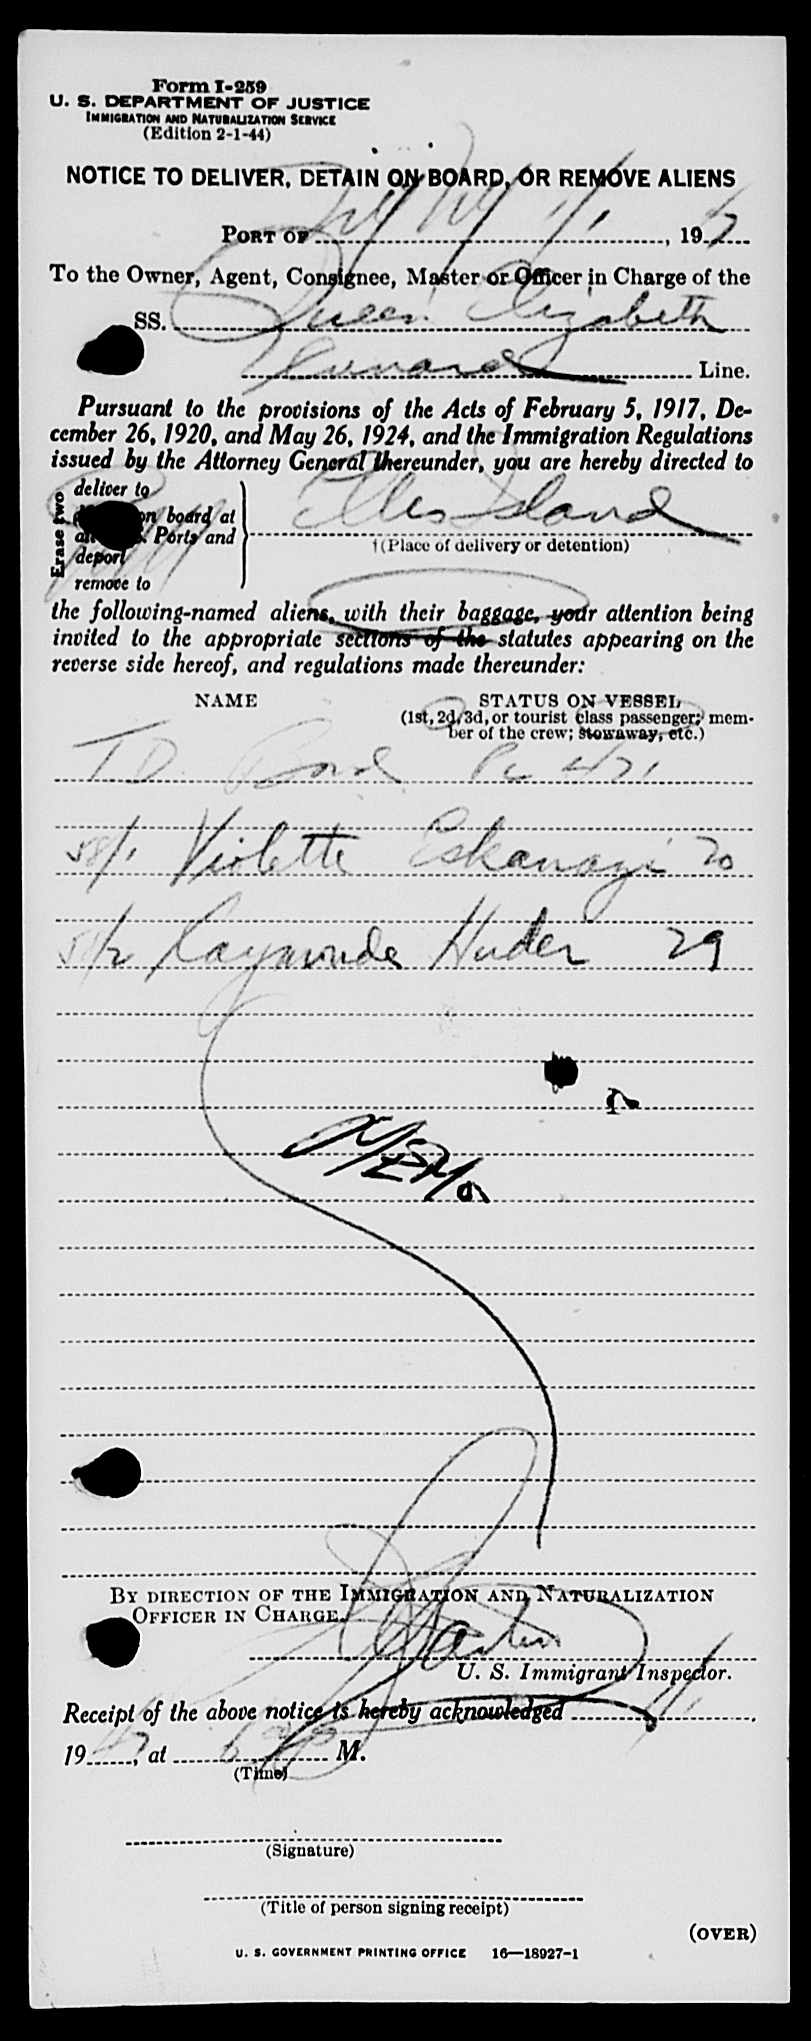 Form I-259
U. S. DEPARTMENT OF JUSTICE
IMMIGRATION AND NATURALIZATION SERVICE
(Edition 2-1-44)
NOTICE TO DELIVER, DETAIN ON BOARD, OR REMOVE ALIENS
PORT OF N Y N Y 1/1, 1947
To the Owner, Agent, Consignee, Master or Officer in Charge of the
SS. Queen Elizabeth
Cunard Line.
Pursuant to the provisions of the Acts of February 5, 1917, De-
cember 26, 1920, and May 26, 1924, and the Immigration Regulations
issued by the Attorney General thereunder, you are hereby directed to
Erase two
deliver to
on board at
Ports and
deport
remove to
Ellis Island
†(Place of delivery or detention)
the following-named aliens, with their baggage, your attention being
invited to the appropriate sections of the statutes appearing on the
reverse side hereof, and regulations made thereunder:
NAME STATUS ON VESSEL
(1st, 2d, 3d, or tourist class passenger; mem-
ber of the crew; stowaway, etc.)
T D Bond 471
58/1 Violette Eskanazi 20
Raymonde Huder 29
MEMO
BY DIRECTION OF THE IMMIGRATION AND NATURALIZATION
OFFICER IN CHARGE.
U. S. Immigrant Inspector.
Receipt of the above notice is hereby acknowledged 1/1,
1947, at M.
(Time)
(Signature)
(Title of person signing receipt)
(OVER)
U. S. GOVERNMENT PRINTING OFFICE 16—18927-1